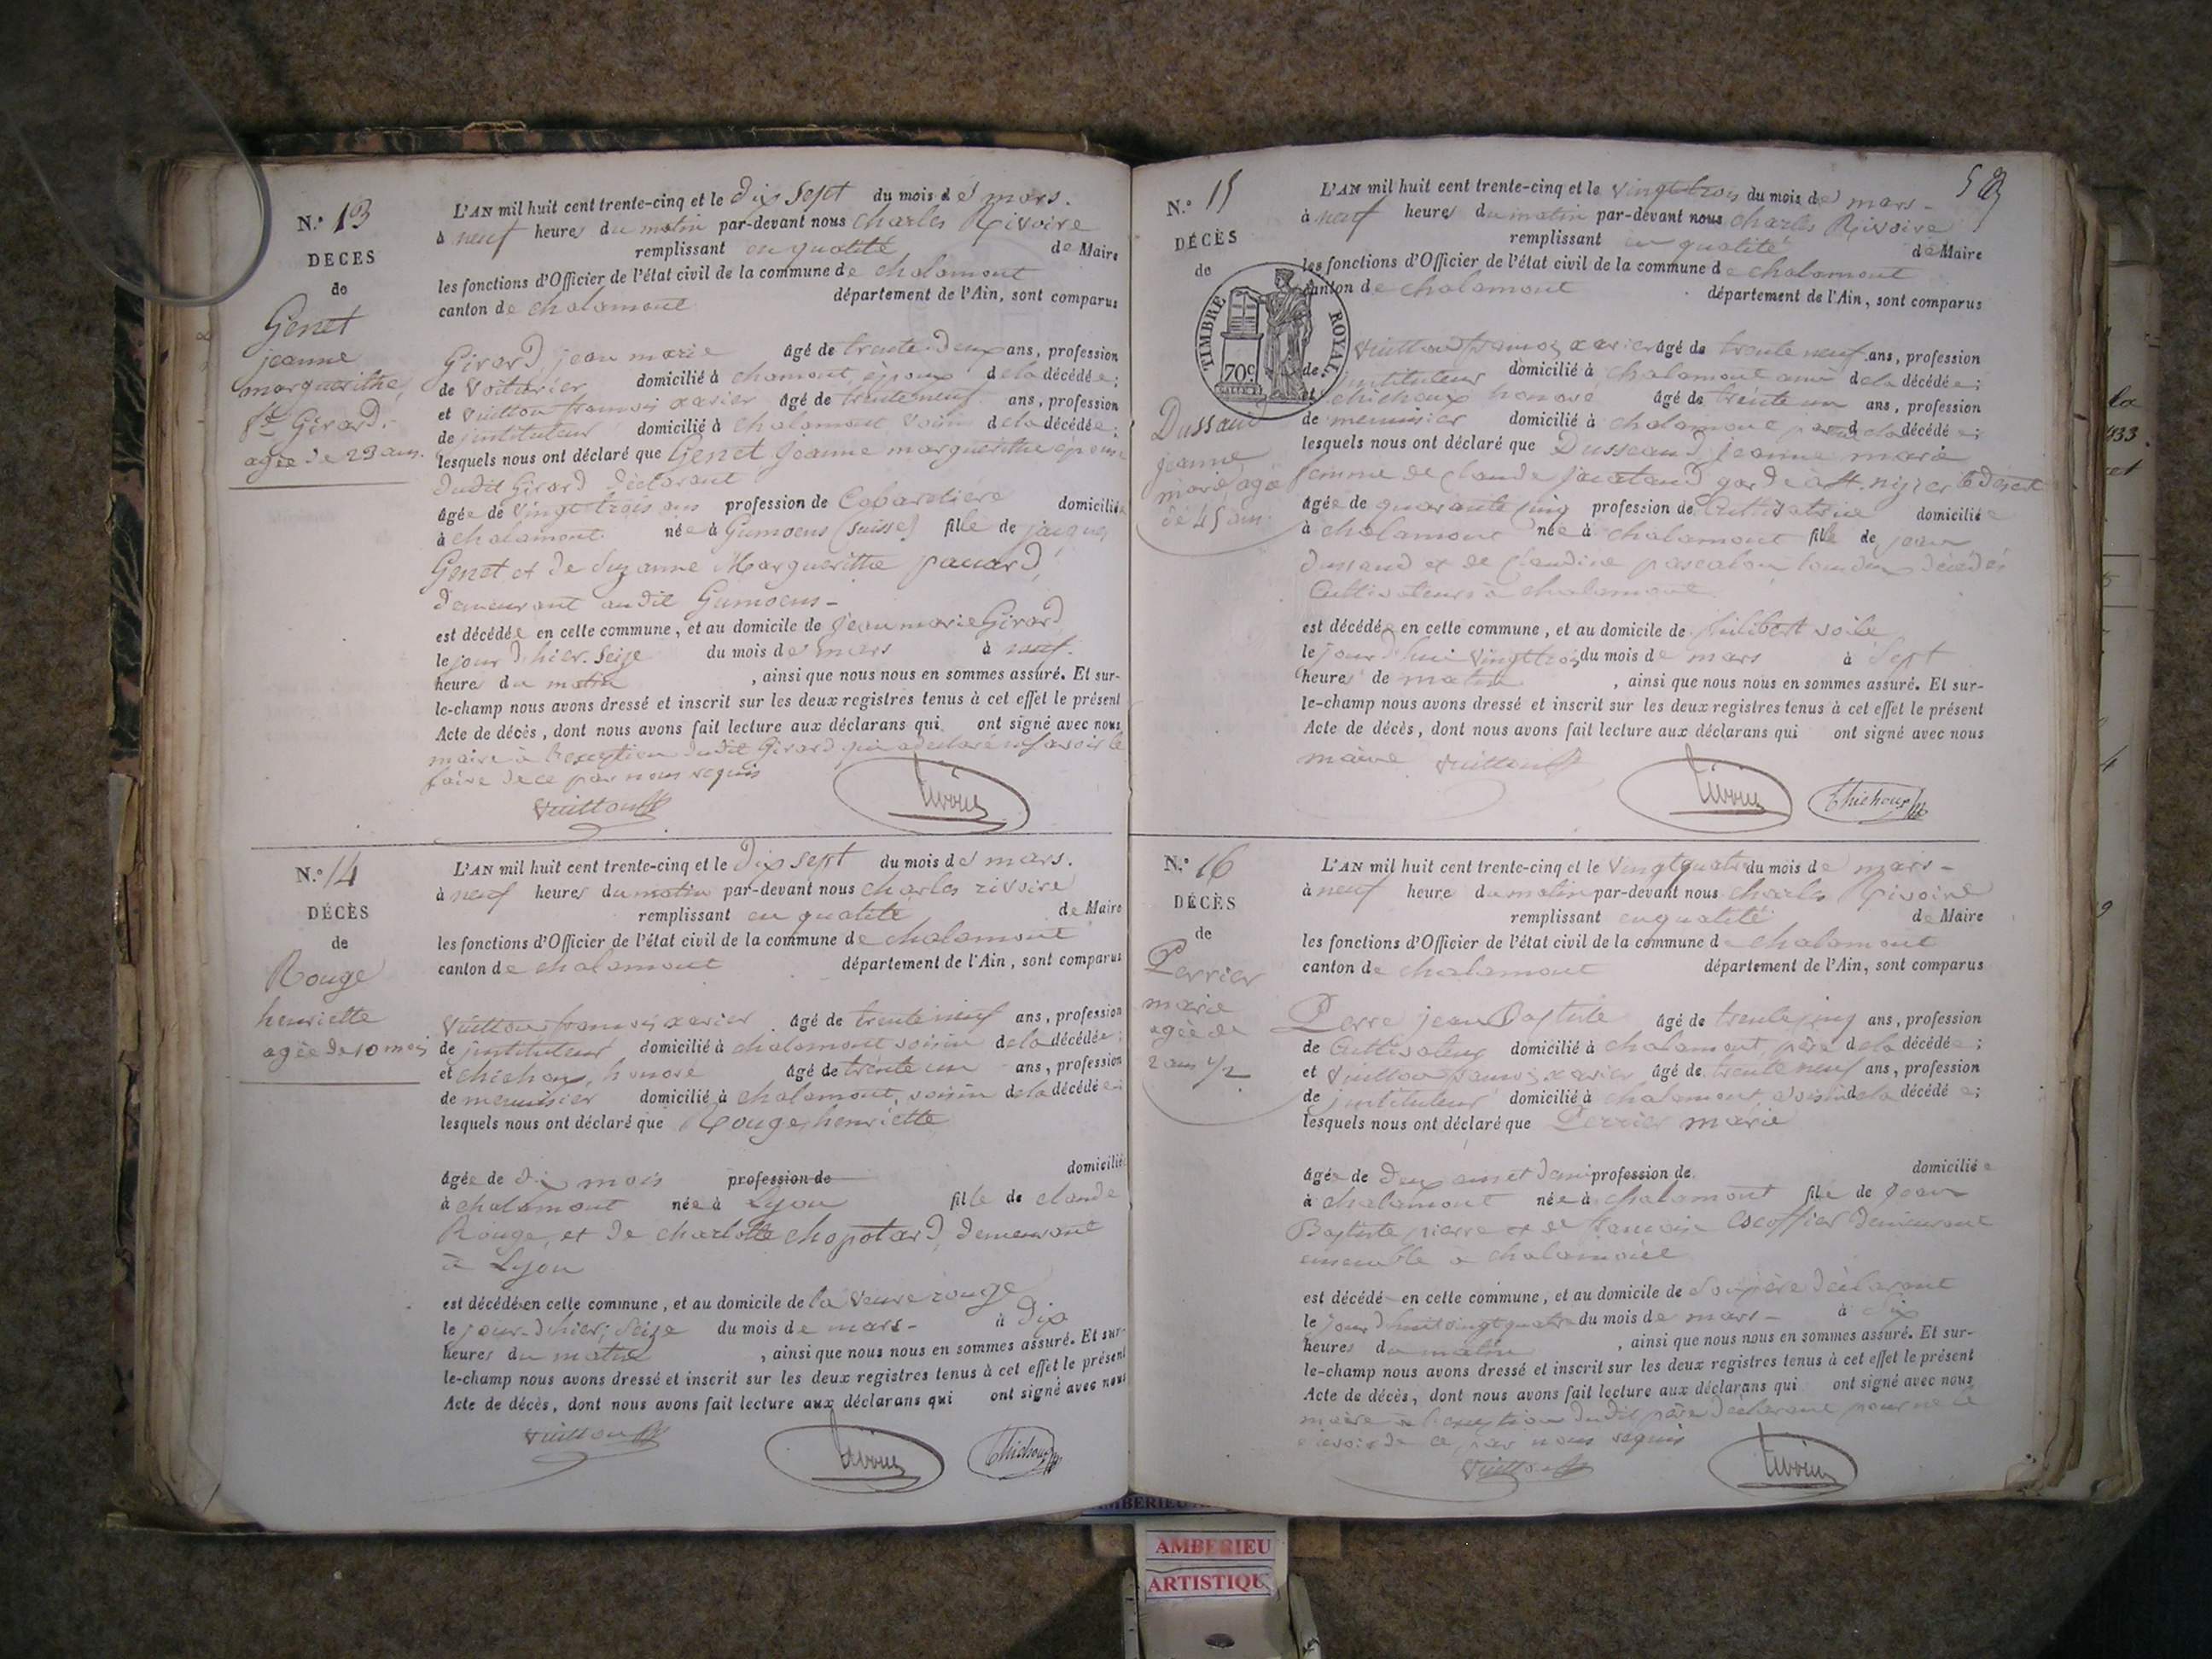 N.° 13
DECES
de
Genet
jeanne
marguerithe,
fe Girard.
agée de 23 ans.
L'AN mil huit cent trente-cinq et le dix sept du mois de mars.
à neuf heures du matin par-devant nous Charles Rivoire
remplissant en qualité de Maire
les fonctions d'Officier de l'état civil de la commune de chalamont
canton de chalamont département de l'Ain, sont comparus
Girard, jean marie âgé de trente deux ans, profession
de Voiturier domicilié à chamont, époux de la décédée;
et Vuitton françois xavier âgé de trente neuf ans, profession
de jnstituteur domicilié à chalamont, voisin de la décédée;
lesquels nous ont déclaré que Genet Jeanne marguerithe épouse
dudit Girard déclarant
âgée de vingt trois ans profession de Cabaretiere domiciliée
à chalamont. née à Gumoens (Suisse) fille de jacques
Genet et de Suzanne Marguerithe pauard,
demeurant audit Gumoens -
est décédée en cette commune, et au domicile de Jean marie Girard
le jour d'hier. Seize du mois de mars à neuf.
heures du matin , ainsi que nous nous en sommes assuré. Et sur-
le-champ nous avons dressé et inscrit sur les deux registres tenus à cet effet le présent
Acte de décès, dont nous avons fait lecture aux déclarans qui ont signé avec nous
maire à l'exception dudit Girard qui a déclaré ne savoir le
faire de ce par nous requis
Vuitton
Rivoire
N.° 14
DÉCÈS
de
Rouge
henriette
agée de 10 mois
L'AN mil huit cent trente-cinq et le dix sept du mois de mars.
à neuf heures du matin par-devant nous charles rivoire
remplissant en qualité de Maire
les fonctions d'Officier de l'état civil de la commune de chalamont
canton de chalamont département de l'Ain, sont comparus
Vuitton françois xavier âgé de trente neuf ans, profession
de jnstituteur domicilié à chalamont voisin de la décédée;
et chichoux, honoré âgé de trente un ans, profession
de menuisier domicilié à chalamont, voisin de la décédée;
lesquels nous ont déclaré que Rouge, henriette
âgée de dix mois profession de domiciliée
à chalamont née à Lyon fille de claude
Rouge, et de charlotte chopotard, demeurant
à Lyon
est décédée en cette commune, et au domicile de la veuve rouge
le jour d'hier, Seize du mois de mars - à dix
heures du matin , ainsi que nous nous en sommes assuré. Et sur-
le-champ nous avons dressé et inscrit sur les deux registres tenus à cet effet le présent
Acte de décès, dont nous avons fait lecture aux déclarans qui ont signé avec nous
Vuitton
Rivoire
Chichoux
N.° 15
DÉCÈS
de
TIMBRE ROYAL
70c
Dussaud
jeanne
marie, agée
de 45 ans.
L'AN mil huit cent trente-cinq et le vingt trois du mois de mars -
à neuf heures du matin par-devant nous Charles Rivoire
remplissant en qualité de Maire
les fonctions d'Officier de l'état civil de la commune de chalamont
canton de chalamont département de l'Ain, sont comparus
Vuitton françois xavier âgé de trente neuf ans, profession
de jnstituteur domicilié à chalamont ami de la décédée;
et chichoux honoré âgé de trente un ans, profession
de menuisier domicilié à chalamont de la décédée;
lesquels nous ont déclaré que Dusseaud, Jeanne marie
femme de Claude garde à St. nizier le désert
âgée de quarante cinq profession de Cultivatrice domiciliée
à chalamont née à chalamont fille de jean
Dussaud et de Claudine décédés
Cultivateurs à chalamont.
est décédée en cette commune, et au domicile de philibert voile
le jourd'hui vingt trois du mois de mars à Sept
heures de matin , ainsi que nous nous en sommes assuré. Et sur-
le-champ nous avons dressé et inscrit sur les deux registres tenus à cet effet le présent
Acte de décès, dont nous avons fait lecture aux déclarans qui ont signé avec nous
maire Vuitton
Rivoire
Chichoux
N.° 16
DÉCÈS
de
Perrier
marie
agée de
2 ans 1/2
L'AN mil huit cent trente-cinq et le vingt quatre du mois de mars -
à neuf heure du matin par-devant nous charles Rivoire
remplissant en qualité de Maire
les fonctions d'Officier de l'état civil de la commune de chalamont
canton de chalamont département de l'Ain, sont comparus
Perre jean Baptiste âgé de trente cinq ans, profession
de Cultivateur domicilié à chalamont, père de la décédée;
et Vuitton françois xavier âgé de trente neuf ans, profession
de jnstituteur domicilié à chalamont, voisin de la décédée;
lesquels nous ont déclaré que Perrier marie
âgée de deux ans et demi profession de domiciliée
à chalamont née à chalamont fille de Jean
Baptiste pierre et de françoise Escoffier demeurant
ensemble à chalamont
est décédé en cette commune, et au domicile de Son père déclarant
le jourd'hui vingt quatre du mois de mars - à Six
heures du matin , ainsi que nous nous en sommes assuré. Et sur-
le-champ nous avons dressé et inscrit sur les deux registres tenus à cet effet le présent
Acte de décès, dont nous avons fait lecture aux déclarans qui ont signé avec nous
maire à l'exception dudit père déclarant pour ne le
savoir de ce par nous requis
Vuitton
Rivoire
AMBERIEU
ARTISTIQUE